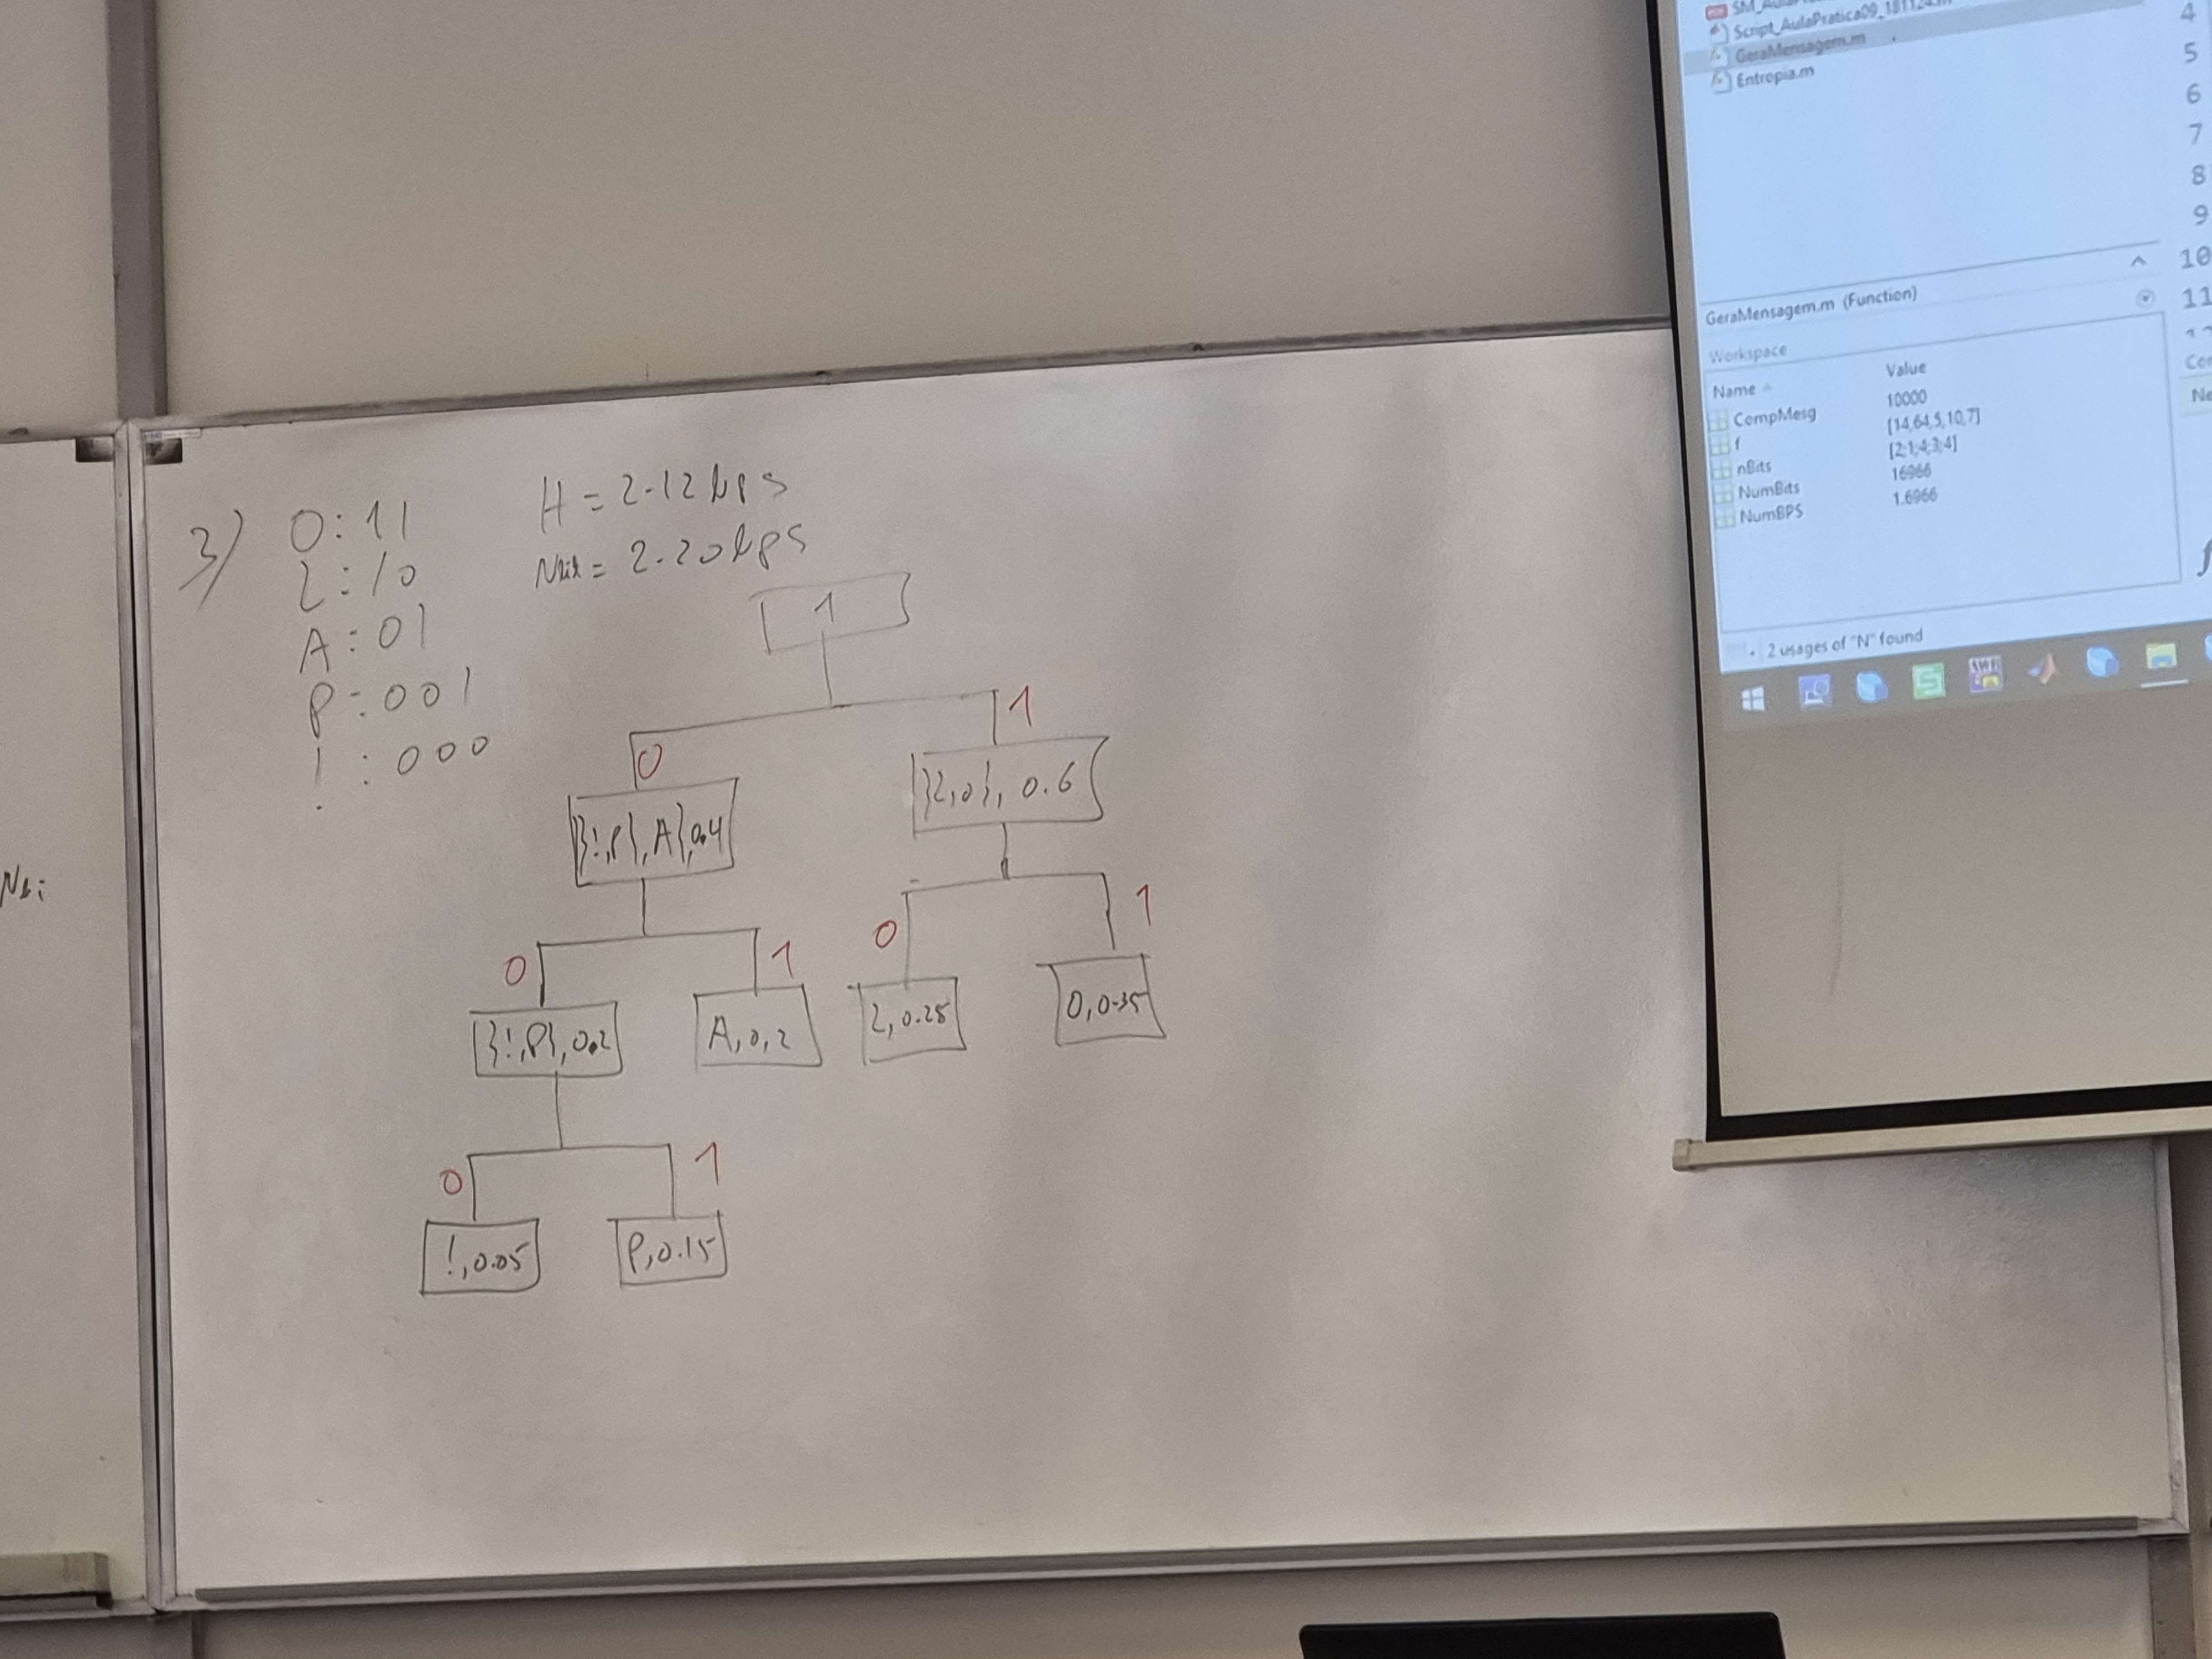 3)
O: 11
L: 10
A: 01
P: 001
! : 000
H = 2.12 bps
Nbit = 2.20 bps
1
0
1
{{!,P},A},0.4
{L,O}, 0.6
0
1
0
1
{!,P},0.2
A,0,2
L,0.25
O,0.35
0
1
!,0.05
P,0.15
Script_AulaPratica09_181124.m
GeraMensagem.m
Entropia.m
GeraMensagem.m (Function)
Workspace
Name Value
CompMesg 10000
f [14,64,5,10,7]
nBits [2;1;4;3;4]
NumBits 16966
NumBPS 1.6966
2 usages of "N" found
4
5
6
7
8
9
10
11